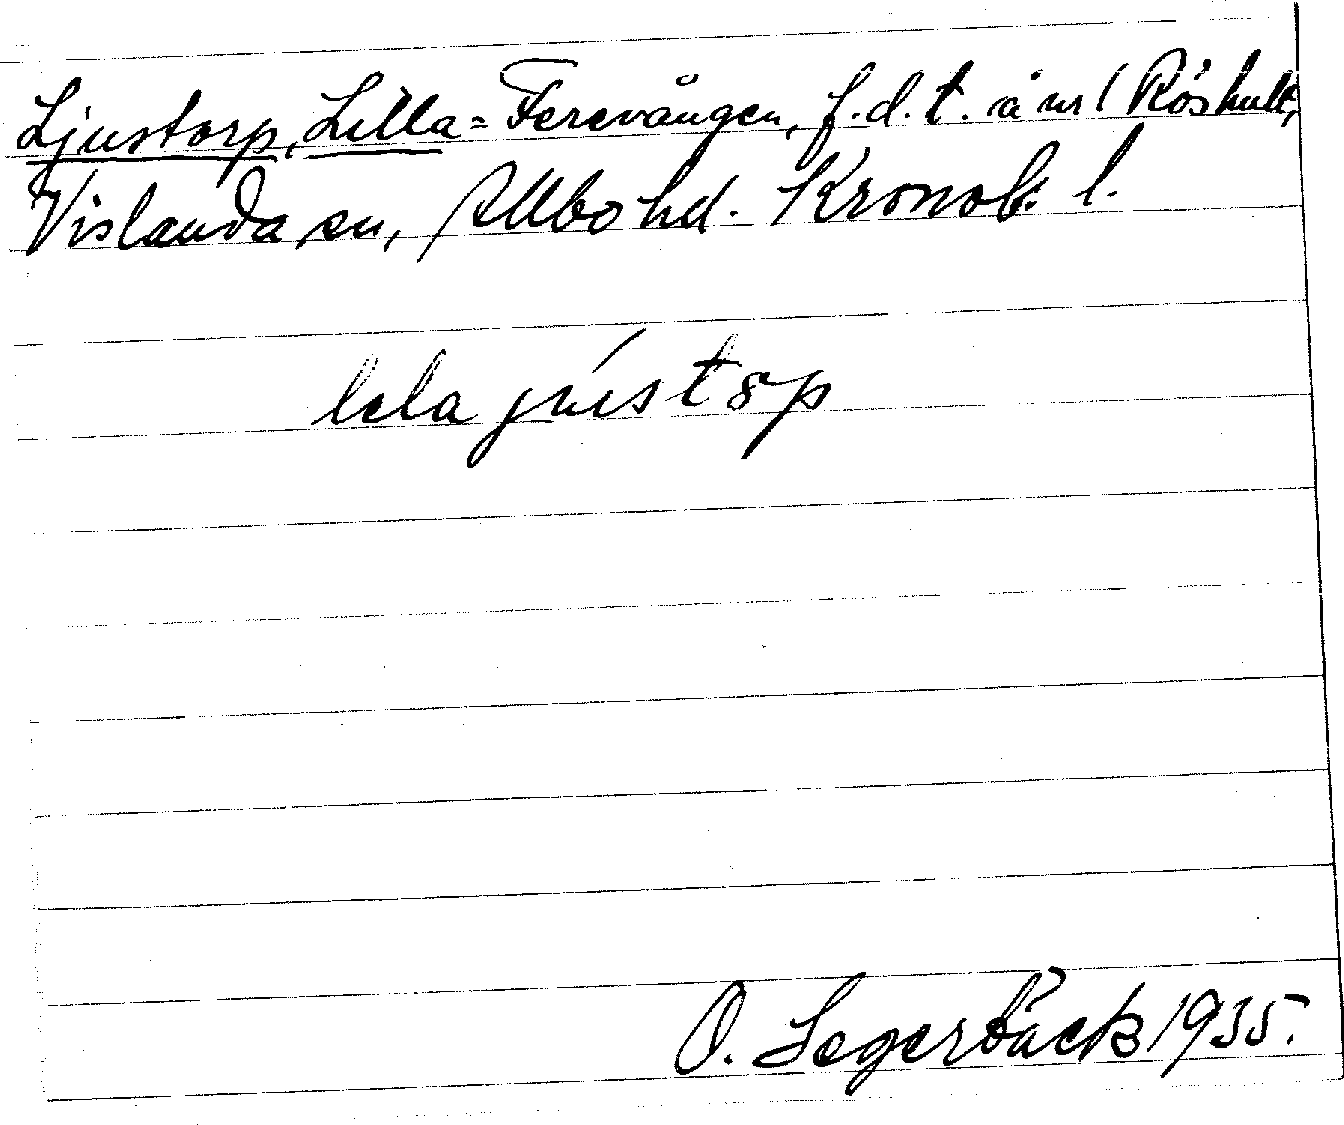 Ljustorp, Lilla = Ferevången, f.d. t. å nr 1 Röshult,
Vislanda sn, Allbo hd. Kronob. l.
lela jústǝp
O. Segerbäck 1935.